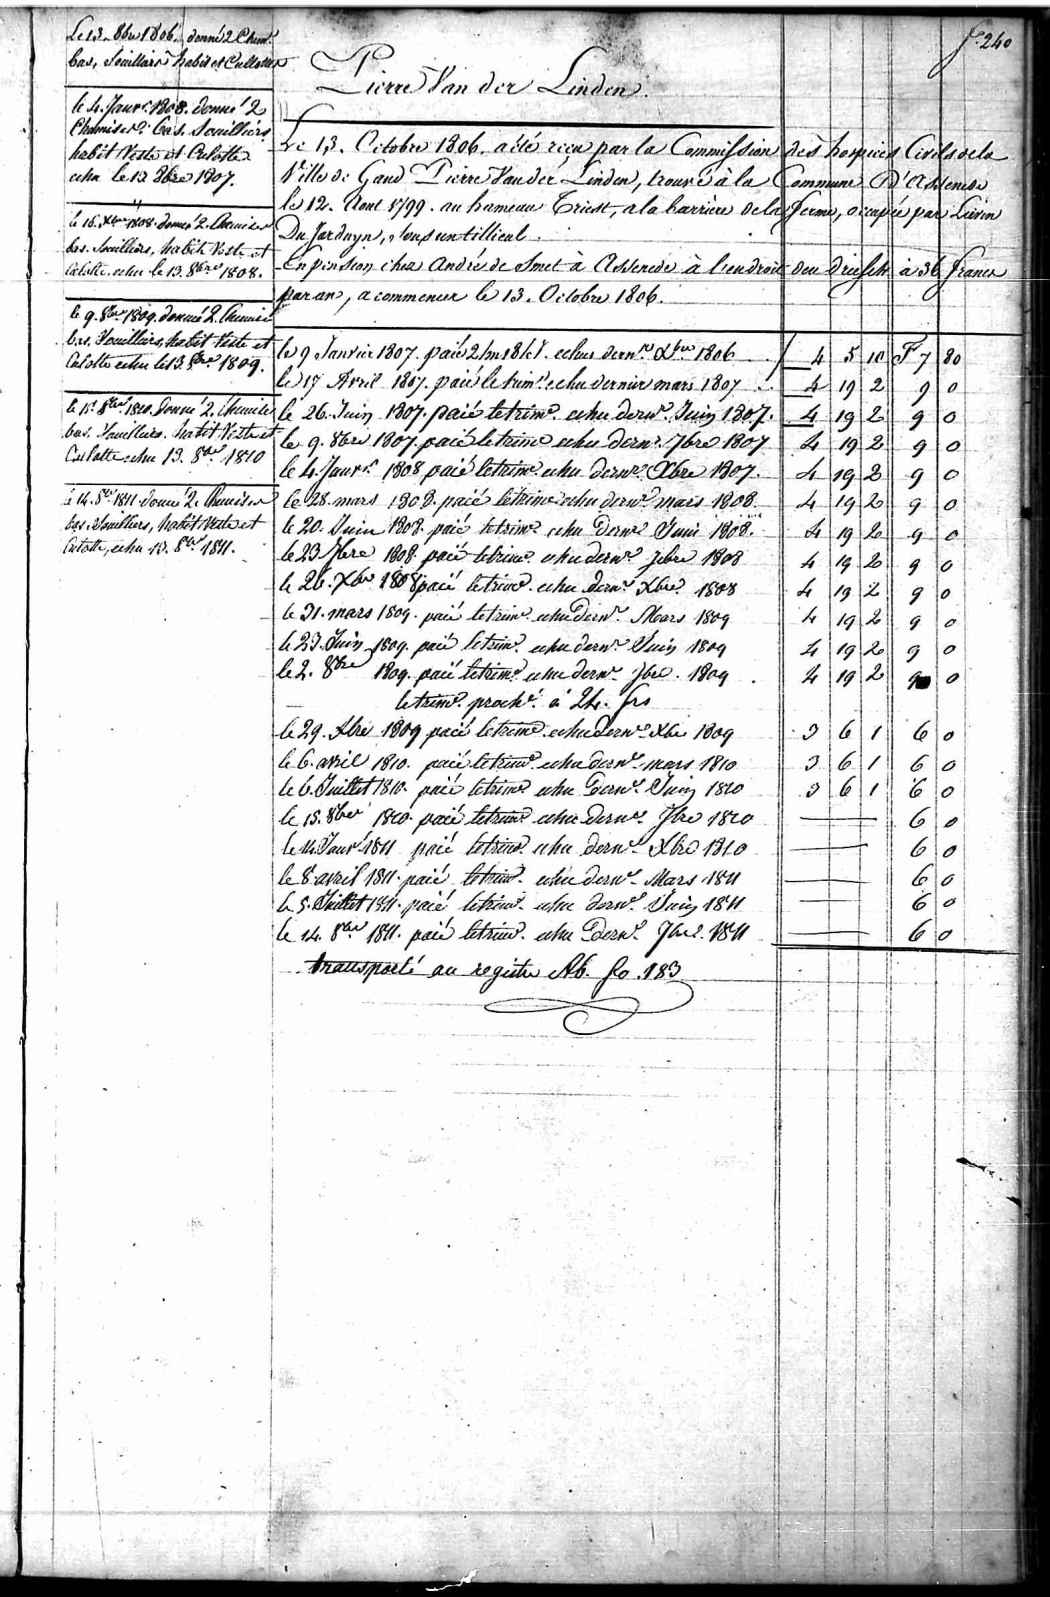 f. 240
Pierre Van der Linden.
Le 13. 8bre 1806. donné 2 Chem.
bas, Souilliers habit et Culottes
le 4. Janv. 1808. donné 2
Chemises. bas. Souilliers
habit Veste et Culotte
echu le 13 8bre 1807.
le 16. Xbre 1808. donné 2. Chemises
bas. Souilliers, habit Veste et
Culotte. echu le 13. 8bre 1808.
le 9. 8bre 1809. donné 2. Chemises
bas, Souilliers, habit Veste et
Culotte echu le 13. 8bre 1809.
le 15. 8bre 1810. donné 2. Chemises
bas. Souilliers. habit Veste et
Culotte echu 13. 8bre 1810
le 14. 8bre 1811. donné 2. Chemises
bas Souilliers, habit Veste et
Culotte, echu 13. 8bre 1811.
Le 13. Octobre 1806. a été reçu par la Commission des hospices Civils de la
Ville de Gand Pierre Van der Linden, trouvé à la Commune D'Assenede
le 12. Aout 1799. au hameau Triest, a la barrière de la ferme, occupée par Lievin
De Jarduyn, sous un tillieul.
En pension chez André de Smet à Assenede à l'endroit den driesch à 36 francs
par an, a commencer le 13. Octobre 1806.
le 9 Janvier 1807. paié 2 m 18 js. echus dern.re Xbre 1806 4 5 10 F 7 80
le 17 Avril 1807. paié le trim.e echu dernier mars 1807 4 19 2 9 0
le 26. Juin 1807. paié le trim.e echu dern.r Juin 1807. 4 19 2 9 0
le 9. 8bre 1807. paié le trim.e echu dern.r 7bre 1807 4 19 2 9 0
le 4 Janv.r 1808 paié le trim.e echu dern.r Xbre 1807. 4 19 2 9 0
le 28. mars 1808. paié le trim.e echu dern.r mars 1808. 4 19 2 9 0
le 20. Juin 1808. paié le trim.e echu Dern.r Juin 1808. 4 19 2 9 0
le 23 7bre 1808. paié le trim.e echu dern.r 7bre 1808 4 19 2 9 0
le 26. Xbre 1808 paié le trim.e echu dern.r Xbre 1808 4 19 2 9 0
le 31. mars 1809. paié le trim.e echu Dern.r Mars 1809 4 19 2 9 0
le 23. Juin 1809. paié le trim.e echu dern.r Juin 1809 4 19 2 9 0
le 2. 8bre 1809. paié le trim.e echu dern.r 7bre. 1809 4 19 2 9 0
le trim.e proch.n à 24. frs
le 29. Xbre 1809 paié le trim.e echu dern.r Xbre 1809 3 6 1 6 0
le 6. avril 1810. paié le trim.e echu dern.r mars 1810 3 6 1 6 0
le 6. Juillet 1810. paié le trim.e echu Dern.r Juin 1810 3 6 1 6 0
le 15. 8bre 1810. paié le trim.e echu dern.r 7bre 1810 6 0
le 4. Janv.r 1811 paié le trim.e echu dern.r Xbre 1810 6 0
le 8. avril 1811. paié le trim.e echu dern.r Mars 1811 6 0
le 5. Juillet 1811. paié le trim.e echu dern.r Juin 1811 6 0
le 14. 8bre 1811. paié le trim.e echu Dern.r 7bre. 1811 6 0
transporté au registre No. fo. 183